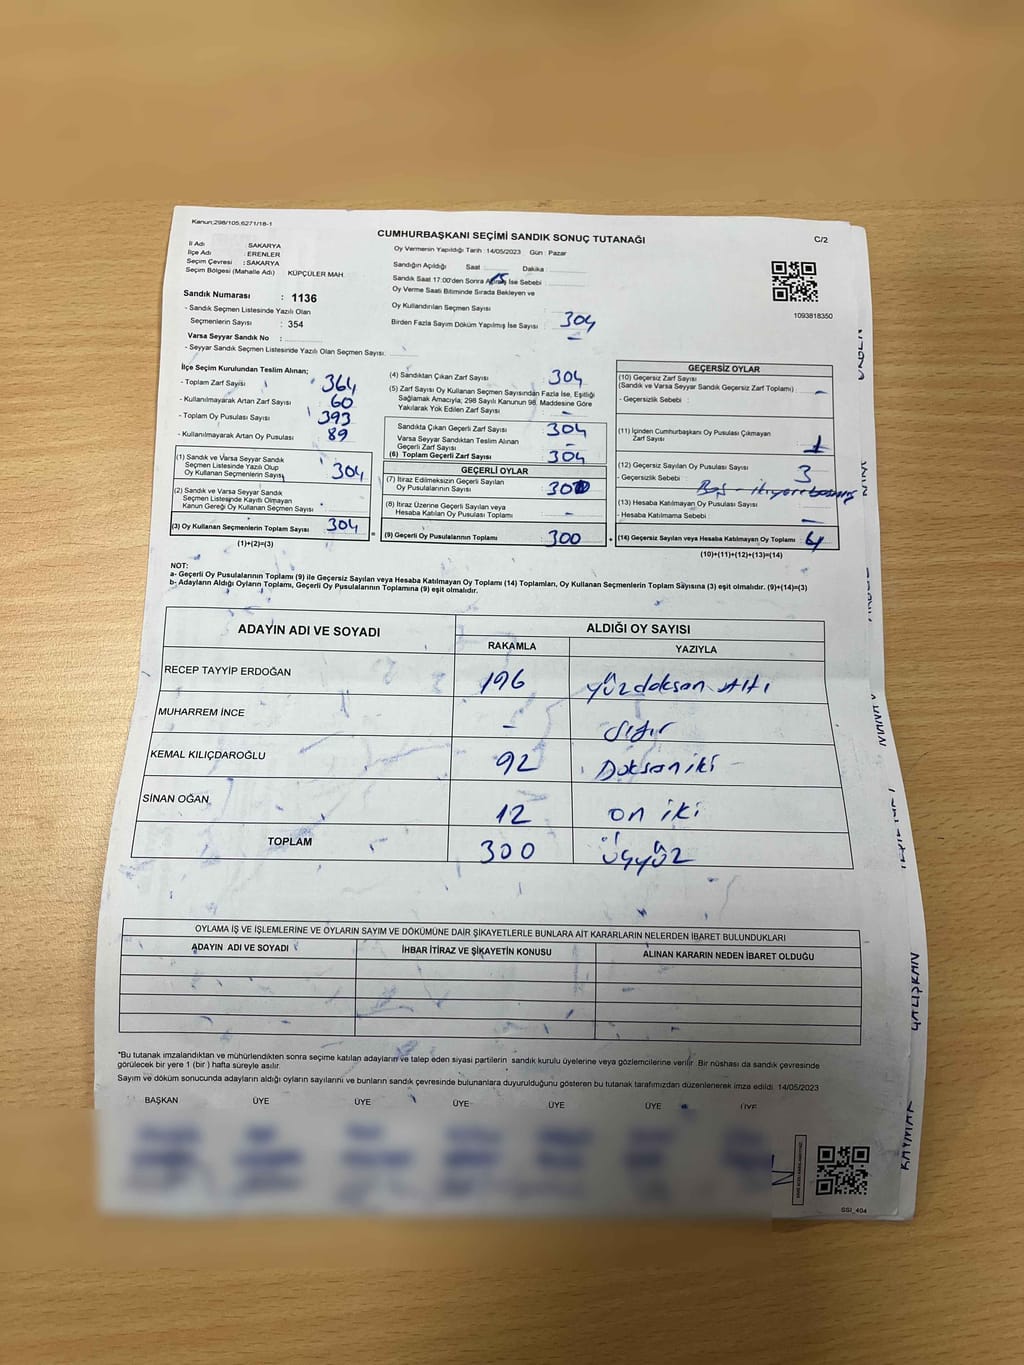 Kanun;298/105,6271/18-1
CUMHURBAŞKANI SEÇİMİ SANDIK SONUÇ TUTANAĞI
C/2
İl Adı : SAKARYA
İlçe Adı : ERENLER
Seçim Çevresi : SAKARYA
Seçim Bölgesi (Mahalle Adı) KÜPÇÜLER MAH
Sandık Numarası : 1136
- Sandık Seçmen Listesinde Yazılı Olan
Seçmenlerin Sayısı : 354
Varsa Seyyar Sandık No :
- Seyyar Sandık Seçmen Listesinde Yazılı Olan Seçmen Sayısı:
Oy Vermenin Yapıldığı Tarih : 14/05/2023 Gün : Pazar
Sandığın Açıldığı Saat : Dakika :
Sandık Saat 17:00'den Sonra Açılmış İse Sebebi :
Oy Verme Saati Bitiminde Sırada Bekleyen ve
Oy Kullandırılan Seçmen Sayısı :
Birden Fazla Sayım Döküm Yapılmış İse Sayısı : 304
1093818350
İlçe Seçim Kurulundan Teslim Alınan;
- Toplam Zarf Sayısı : 364
- Kullanılmayarak Artan Zarf Sayısı : 60
- Toplam Oy Pusulası Sayısı : 393
- Kullanılmayarak Artan Oy Pusulası : 89
(1) Sandık ve Varsa Seyyar Sandık
Seçmen Listesinde Yazılı Olup
Oy Kullanan Seçmenlerin Sayısı : 304
(2) Sandık ve Varsa Seyyar Sandık
Seçmen Listesinde Kayıtlı Olmayan
Kanun Gereği Oy Kullanan Seçmen Sayısı :
(3) Oy Kullanan Seçmenlerin Toplam Sayısı : 304
(1)+(2)=(3)
(4) Sandıktan Çıkan Zarf Sayısı : 304
(5) Zarf Sayısı Oy Kullanan Seçmen Sayısından Fazla İse, Eşitliği
Sağlamak Amacıyla; 298 Sayılı Kanunun 98. Maddesine Göre
Yakılarak Yok Edilen Zarf Sayısı : -
Sandıkta Çıkan Geçerli Zarf Sayısı : 304
Varsa Seyyar Sandıktan Teslim Alınan
Geçerli Zarf Sayısı : -
(6) Toplam Geçerli Zarf Sayısı : 304
GEÇERLİ OYLAR
(7) İtiraz Edilmeksizin Geçerli Sayılan
Oy Pusulalarının Sayısı : 300
(8) İtiraz Üzerine Geçerli Sayılan veya
Hesaba Katılan Oy Pusulası Toplamı : -
(9) Geçerli Oy Pusulalarının Toplamı : 300
GEÇERSİZ OYLAR
(10) Geçersiz Zarf Sayısı
(Sandık ve Varsa Seyyar Sandık Geçersiz Zarf Toplamı) : -
- Geçersizlik Sebebi :
(11) İçinden Cumhurbaşkanı Oy Pusulası Çıkmayan
Zarf Sayısı : 1
(12) Geçersiz Sayılan Oy Pusulası Sayısı : 3
- Geçersizlik Sebebi :
(13) Hesaba Katılmayan Oy Pusulası Sayısı :
- Hesaba Katılmama Sebebi : -
(14) Geçersiz Sayılan veya Hesaba Katılmayan Oy Toplamı : 4
(10)+(11)+(12)+(13)=(14)
NOT:
a- Geçerli Oy Pusulalarının Toplamı (9) ile Geçersiz Sayılan veya Hesaba Katılmayan Oy Toplamı (14) Toplamları, Oy Kullanan Seçmenlerin Toplam Sayısına (3) eşit olmalıdır. (9)+(14)=(3)
b- Adayların Aldığı Oyların Toplamı, Geçerli Oy Pusulalarının Toplamına (9) eşit olmalıdır.
ADAYIN ADI VE SOYADI ALDIĞI OY SAYISI
RAKAMLA YAZIYLA
RECEP TAYYİP ERDOĞAN 196 Yüzdoksan Altı
MUHARREM İNCE - Sıfır
KEMAL KILIÇDAROĞLU 92 Doksan iki -
SİNAN OĞAN 12 on iki
TOPLAM 300 üçyüz
OYLAMA İŞ VE İŞLEMLERİNE VE OYLARIN SAYIM VE DÖKÜMÜNE DAİR ŞİKAYETLERLE BUNLARA AİT KARARLARIN NELERDEN İBARET BULUNDUKLARI
ADAYIN ADI VE SOYADI İHBAR İTİRAZ VE ŞİKAYETİN KONUSU ALINAN KARARIN NEDEN İBARET OLDUĞU
*Bu tutanak imzalandıktan ve mühürlendikten sonra seçime katılan adayların ve talep eden siyasi partilerin sandık kurulu üyelerine veya gözlemcilerine verilir. Bir nüshası da sandık çevresinde
görülecek bir yere 1 (bir ) hafta süreyle asılır.
Sayım ve döküm sonucunda adayların aldığı oyların sayılarını ve bunların sandık çevresinde bulunanlara duyurulduğunu gösteren bu tutanak tarafımızdan düzenlenerek imza edildi. 14/05/2023
BAŞKAN ÜYE ÜYE ÜYE ÜYE ÜYE ÜYE
SSI_404
ÇALIŞKAN
KAYMAK